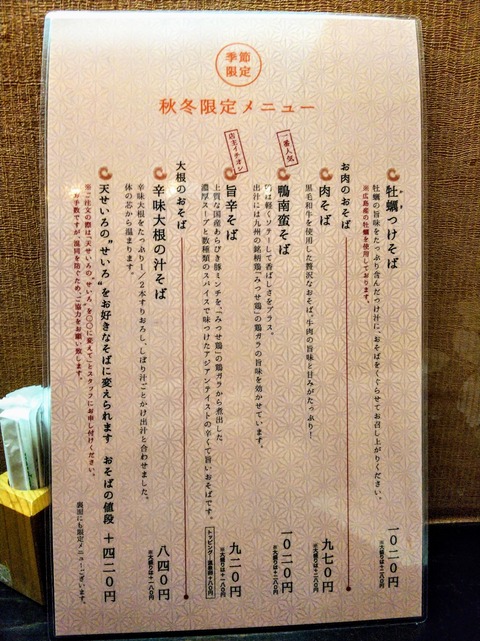 季節
限定
秋冬限定メニュー
牡蠣つけそば
一〇二〇円
牡蠣の旨味をたっぷり含んだつけ汁に、おそばをくぐらせてお召し上がりください。
※広島産の牡蠣を使用しております。
※大盛りは＋二八〇円
お肉のおそば
肉そば
九七〇円
黒毛和牛を使用した贅沢なおそば。牛肉の旨味と甘みがたっぷり！
※大盛りは＋二八〇円
一番人気
鴨南蛮そば
一〇二〇円
は軽くソテーして香ばしさをプラス。
出汁には九州の銘柄鶏「みつせ鶏」の鶏ガラの旨味を効かせています。
※大盛りは＋二八〇円
店主イチオシ
旨辛そば
九二〇円
上質な国産あらびき豚ミンチを「みつせ鶏」の鶏ガラから煮出した
濃厚スープと数種類のスパイスで味つけたアジアンテイストの辛くて旨いおそばです。
※大盛りは＋一八〇円
トッピング 温泉卵＋八〇円
大根のおそば
辛味大根の汁そば
八四〇円
辛味大根をたっぷり1／2本すりおろし、しぼり汁ごとかけ出汁と合わせました。
体の芯から温まります。
※大盛りは＋一八〇円
天せいろの“せいろ”をお好きなそばに変えられます　おそばの値段　＋四二〇円
※ご注文の際は「天せいろの“せいろ”を〇〇に変えて」とスタッフにお申し付けください。
お手数ですが、混同を防ぐため、ご協力をお願い致します。
裏面にも限定メニューございます。